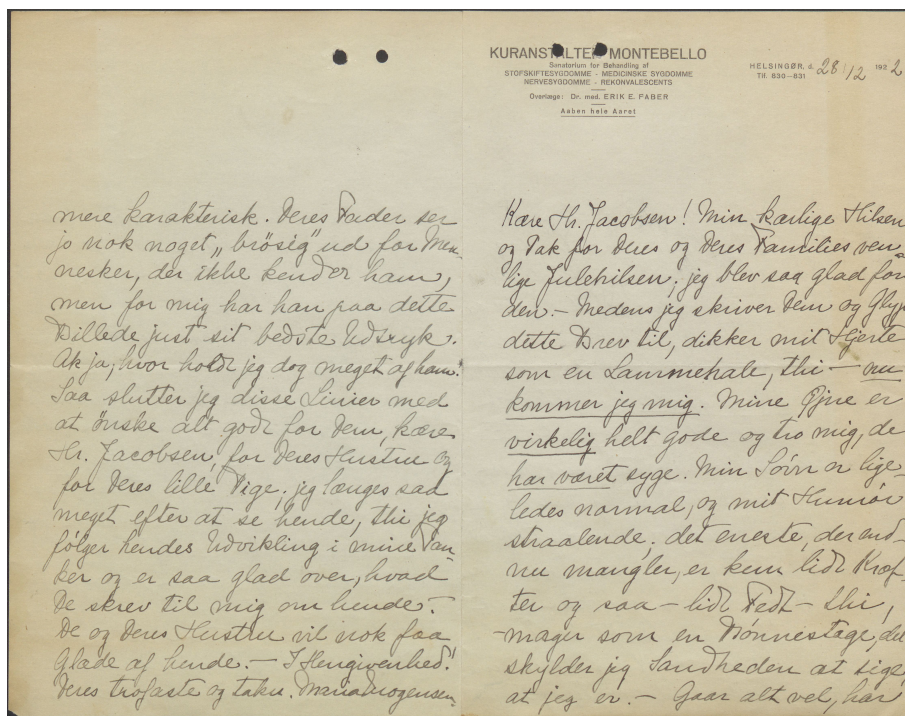 mere karakterisk. Deres Fader ser
jo nok noget „brösig" ud for Men-
nesker, der ikke kender ham,
men for mig har han paa dette
Billede just sit bedste Udtryk.
Ak ja, hvor holdt jeg dog meget af ham!
Saa slutter jeg disse Linier med
at ønske alt godt for Dem, kære
Hr. Jacobsen, for Deres Hustru og
for Deres lille Pige; jeg længes saa
meget efter at se hende, thi jeg
følger hendes Udvikling i mine Tan-
ker og er saa glad over, hvad
De skrev til mig om hende.-
De og Deres Hustru vil nok faa
Glæde af hende. - I Hengivenhed!
Deres trofaste og takn. Maria Mogensen
KURANSTALTEN MONTEBELLO
Sanatorium for Behandling af
STOFSKIFTESYGDOMME - MEDICINSKE SYGDOMME
NERVESYGDOMME - REKONVALESCENTS
Overlæge: Dr. med. ERIK E. FABER
Aaben hele Aaret
HELSINGØR, d. 28/12 1922
Tlf. 630-631
Kære Hr. Jacobsen! Min kærlige Hilsen
og Tak for Deres og Deres Families ven-
lige Julehilsen; jeg blev saa glad for
den. - Medens jeg skriver Dem og Glypt
dette Brev til, dikker mit Hjerte
som en Lammehale, thi - nu
kommer jeg mig. Mine Øjne er
virkelig helt gode og tro mig, de
har været syge. Min Søvn er lige-
ledes normal, og mit Humør
straalende; det eneste, der end-
nu mangler, er kun lidt Kræf-
ter og saa - lidt Fedt - thi,
- mager som en Bønnestage, det
skylder jeg Sandheden at sige,
at jeg er. - Gaar alt vel, har